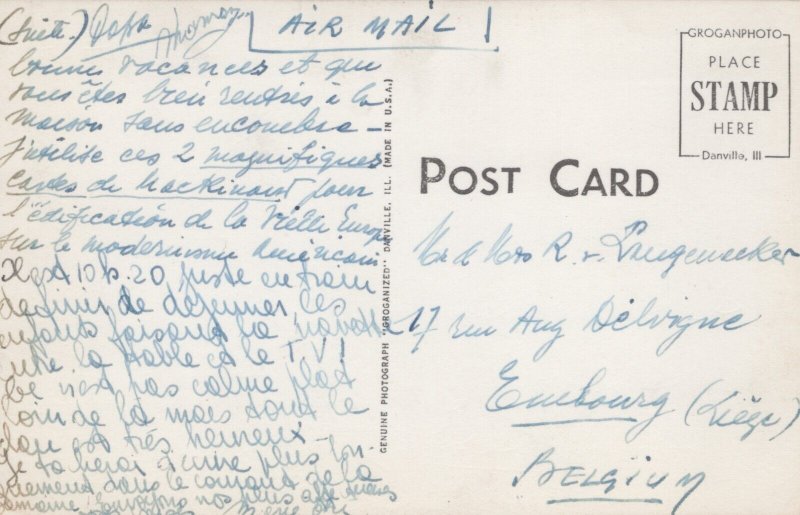 (Suite.) Papa
AIR MAIL !
bonnes vacances et que
vous êtes bien rentrés à la
maison sans encombre -
J'utilise ces 2 magnifiques
cartes de Mackinaw pour
l'édification de la Vieille Europe
sur le modernisme Américain
Il est 10 h. 20, juste en train
de déjeuner, ces
enfants faisant la navette
entre la table et la T.V !
ce n'est pas calme plat
loin de là mais tout le
est très heureux -
plus
dans le courant de la
semaine. nos plus affectueuses
GENUINE PHOTOGRAPH "GROGANIZED" DANVILLE, ILL. (MADE IN U.S.A.)
GROGANPHOTO
PLACE
STAMP
HERE
Danville, Ill
POST CARD
Mr & Mrs R. v. Langenacker
17 rue Aug Délvigne
Embourg (Liège)
BELGIUM